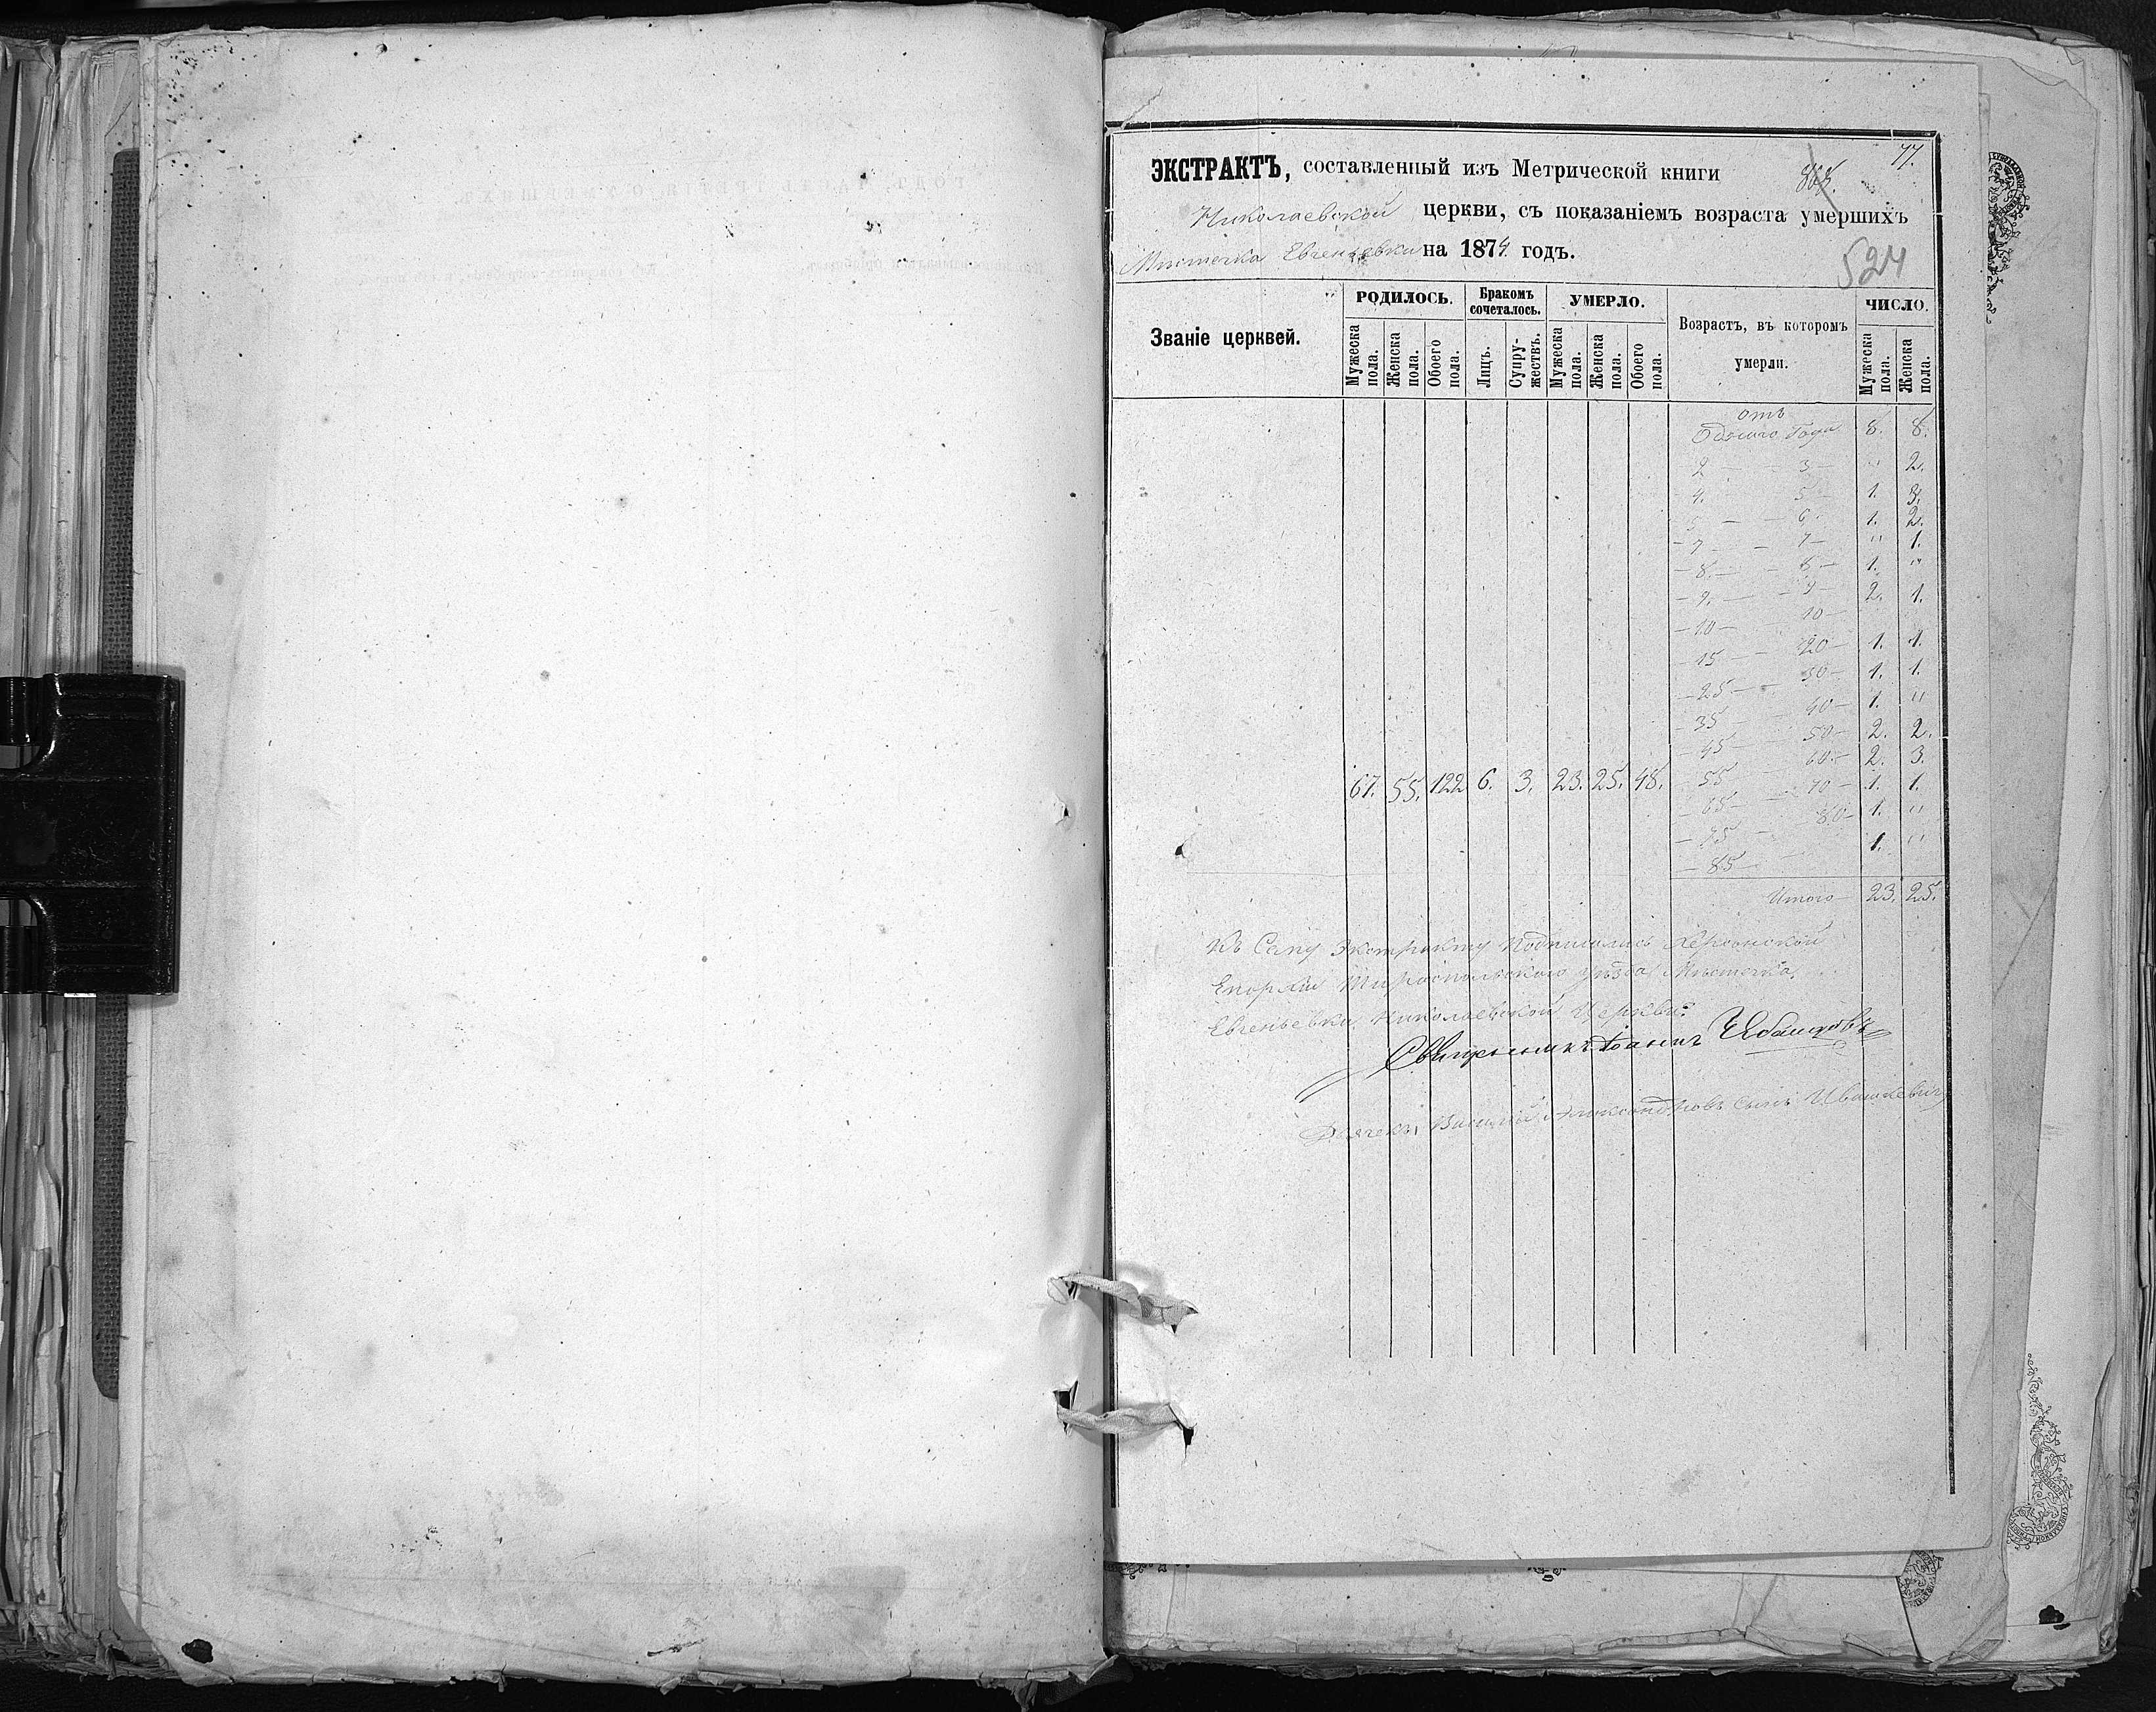 77.
ЭКСТРАКТЪ, составленный изъ Метрической книги
Николаевской церкви, съ показаніемъ возраста умершихъ
Мѣстечка Евгеньевки на 1874 годъ.
524
Званіе церквей.
РОДИЛОСЬ. Бракомъ сочеталось. УМЕРЛО. Возрастъ, въ которомъ умерли. ЧИСЛО.
Мужеска пола. Женска пола. Обоего пола. Лицъ. Супружествъ. Мужеска пола. Женска пола. Обоего пола. Мужеска пола. Женска пола.
отъ
Одного Года 8. 8.
2 — 3 — " 2.
4. — 5 — 1. 3.
— 6 — 1. 2.
— 7 — 7 — " 1.
— 8. — 8 — 1. "
— 9. — 9 — 2. 1.
— 10 — 10 —
— 15 — 20 — 1. 1.
— 25 — 30 — 1. 1.
— 35 — 40 — 1. "
— 45 — 50 — 2. 2.
— 55 — 60 — 2. 3.
67. 55. 122 6. 3. 23. 25. 48.
— 65 — 70 — 1. 1.
— 75 — 80 — 1. "
— 85 — 1. "
Итого 23. 25.
Къ Сему Экстракту Подписались Херсонской
Епархіи Тираспольскаго уѣзда Мѣстечка
Евгеньевки Николаевской Церкви:
Священникъ Іоаннъ
Дьячекъ Василій Александровъ Сынъ Ивашкевичъ